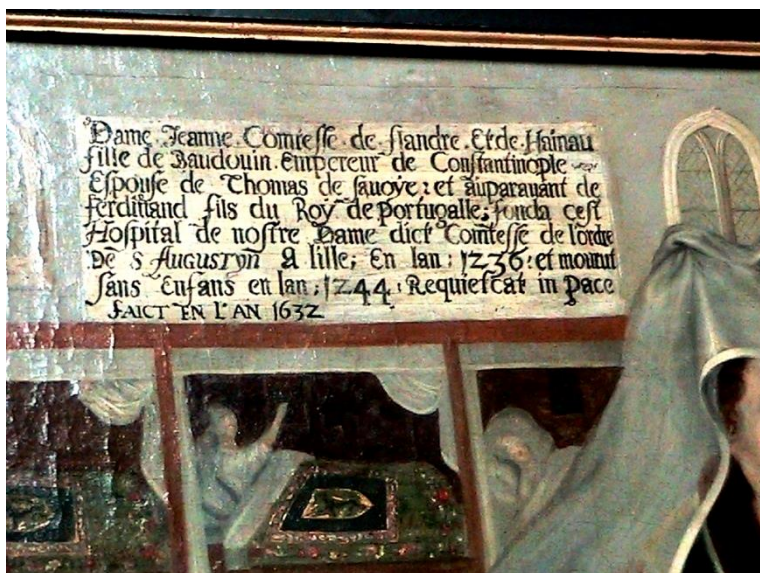 Dame Jeanne Comtesse de flandre Et de Hainau
fille de Baudouin Empereur de Constantinople
Espouse de Thomas de sauoye : et auparauant de
ferdinand fils du Roy de portugalle ; fonda cest
Hospital de nostre Dame dict Comtesse de lordre
De S AUGUSTYN A lille ; En lan : 1236 : et mourut
sans Enfans en lan ; 1244 : Requiescat in Pace
FAICT EN L'AN 1632